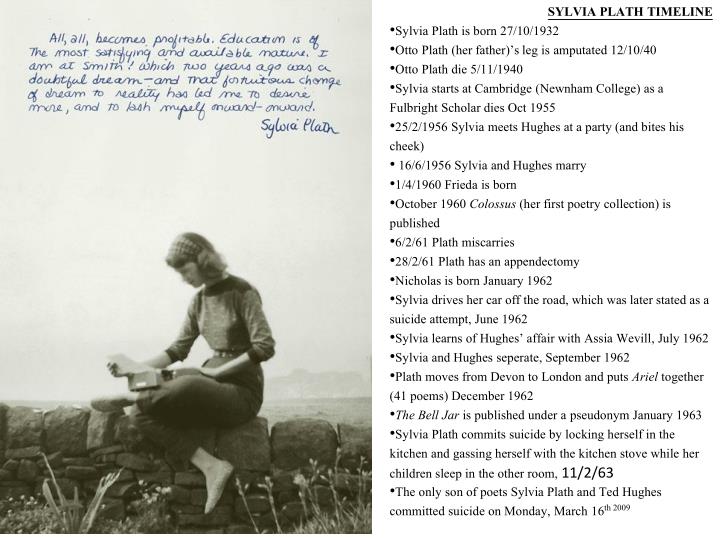 All, all, becomes profitable. Education is of
the most satisfying and available nature. I
am at Smith! Which two years ago was a
doubtful dream—and that fortuitous change
of dream to reality has led me to desire
more, and to lash myself onward-onward.
Sylvia Plath
SYLVIA PLATH TIMELINE
•Sylvia Plath is born 27/10/1932
•Otto Plath (her father)’s leg is amputated 12/10/40
•Otto Plath die 5/11/1940
•Sylvia starts at Cambridge (Newnham College) as a
Fulbright Scholar dies Oct 1955
•25/2/1956 Sylvia meets Hughes at a party (and bites his
cheek)
• 16/6/1956 Sylvia and Hughes marry
•1/4/1960 Frieda is born
•October 1960 Colossus (her first poetry collection) is
published
•6/2/61 Plath miscarries
•28/2/61 Plath has an appendectomy
•Nicholas is born January 1962
•Sylvia drives her car off the road, which was later stated as a
suicide attempt, June 1962
•Sylvia learns of Hughes’ affair with Assia Wevill, July 1962
•Sylvia and Hughes seperate, September 1962
•Plath moves from Devon to London and puts Ariel together
(41 poems) December 1962
•The Bell Jar is published under a pseudonym January 1963
•Sylvia Plath commits suicide by locking herself in the
kitchen and gassing herself with the kitchen stove while her
children sleep in the other room, 11/2/63
•The only son of poets Sylvia Plath and Ted Hughes
committed suicide on Monday, March 16th 2009